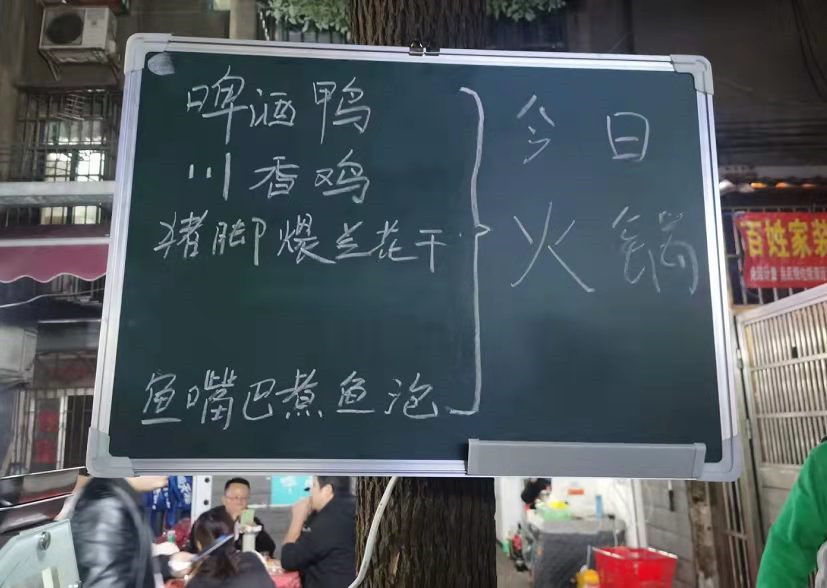 啤酒鸭
川香鸡
猪脚煨兰花干
鱼嘴巴煮鱼泡
今日
火锅
百姓家装